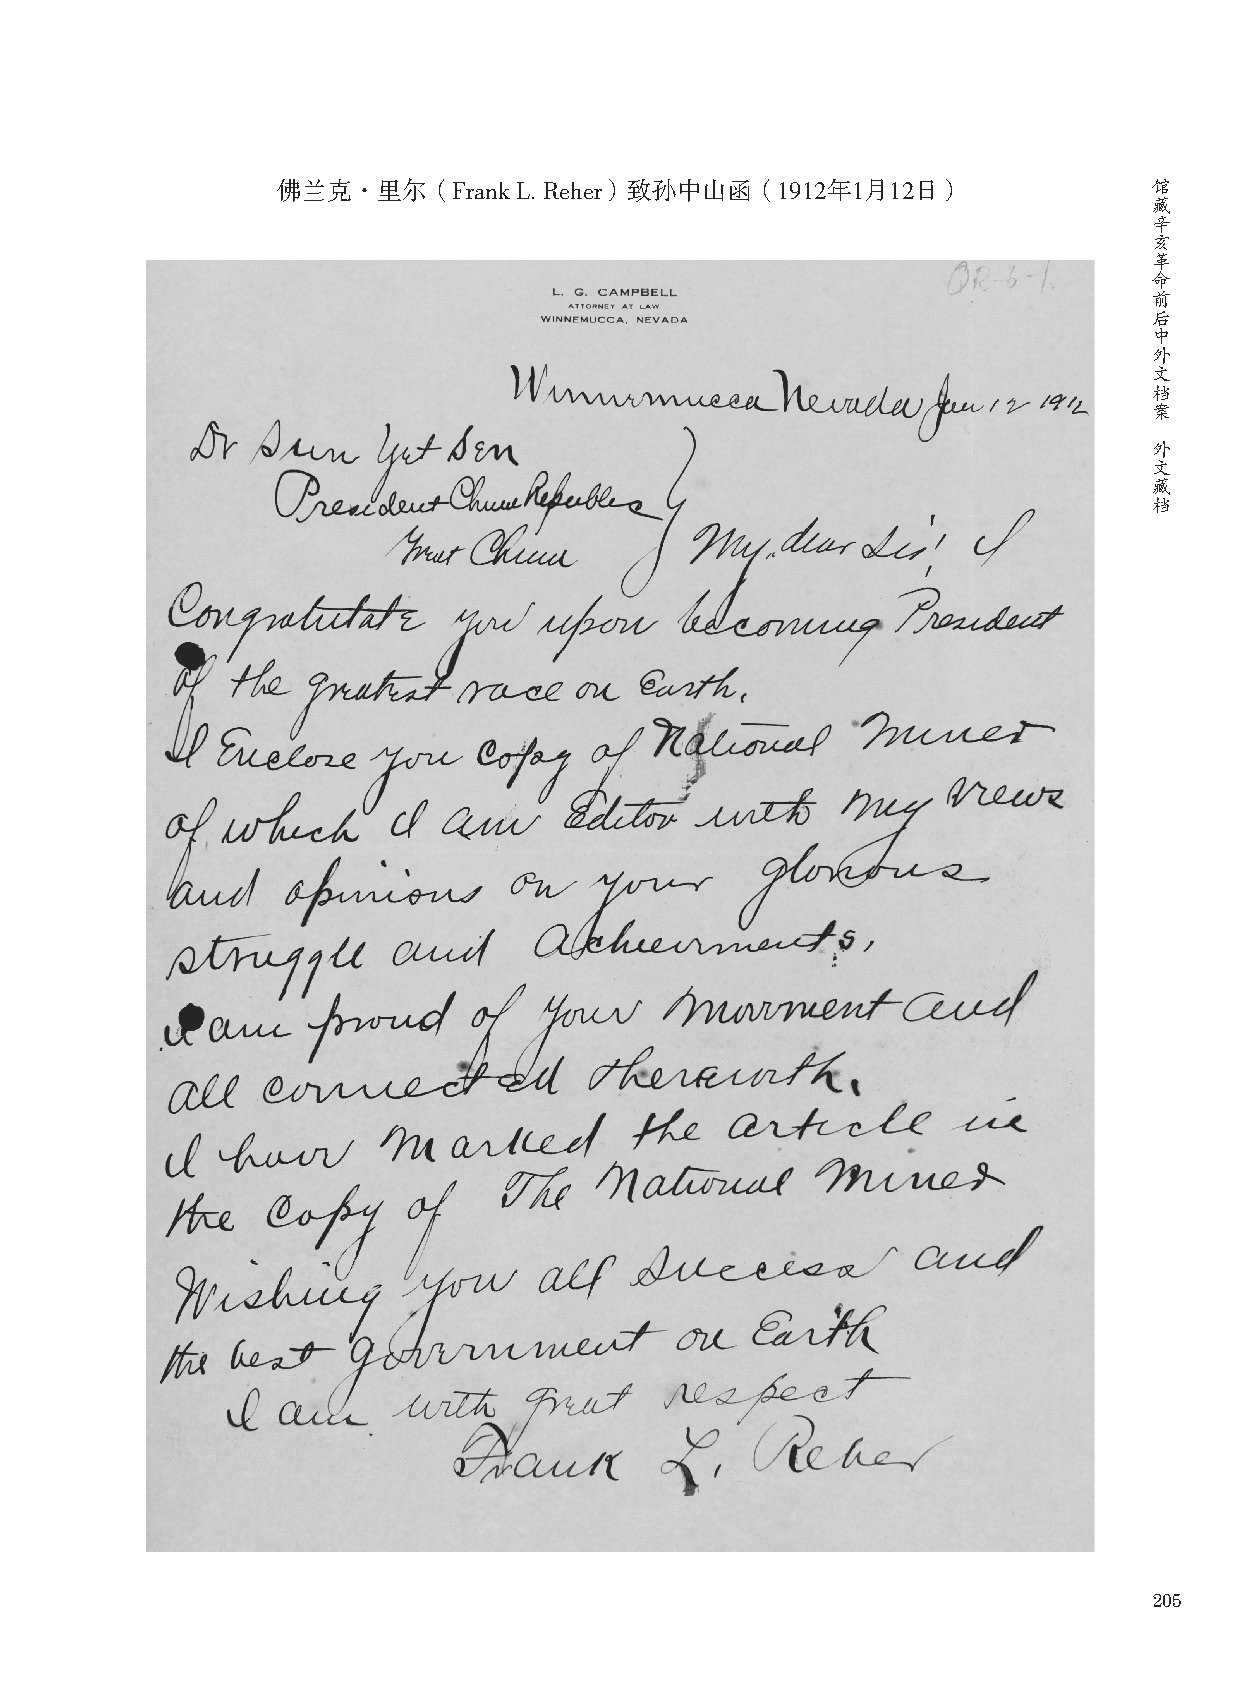 佛兰克·里尔（Frank L. Reher）致孙中山函（1912年1月12日）
馆藏辛亥革命前后中外文档案 外文藏档
QR-6-1.
L. G. CAMPBELL
ATTORNEY AT LAW
WINNEMUCCA, NEVADA
Winnemucca Nevada Jan 12 1912
Dr Sun Yet Sen
President Chinese Republic
Great China
My dear Sir! I
Congratutate you upon becoming President
of the greatest race on Earth.
I Enclose you Copy of National Miner
of which I am Editor with my views
and opinions on your glorious
struggle and Achievements,
I am proud of your movement and
all connected therewith.
I have marked the article in
the Copy of The National Miner
Wishing you all success and
the best government on Earth
I am with great respect
Frank L. Reher
205